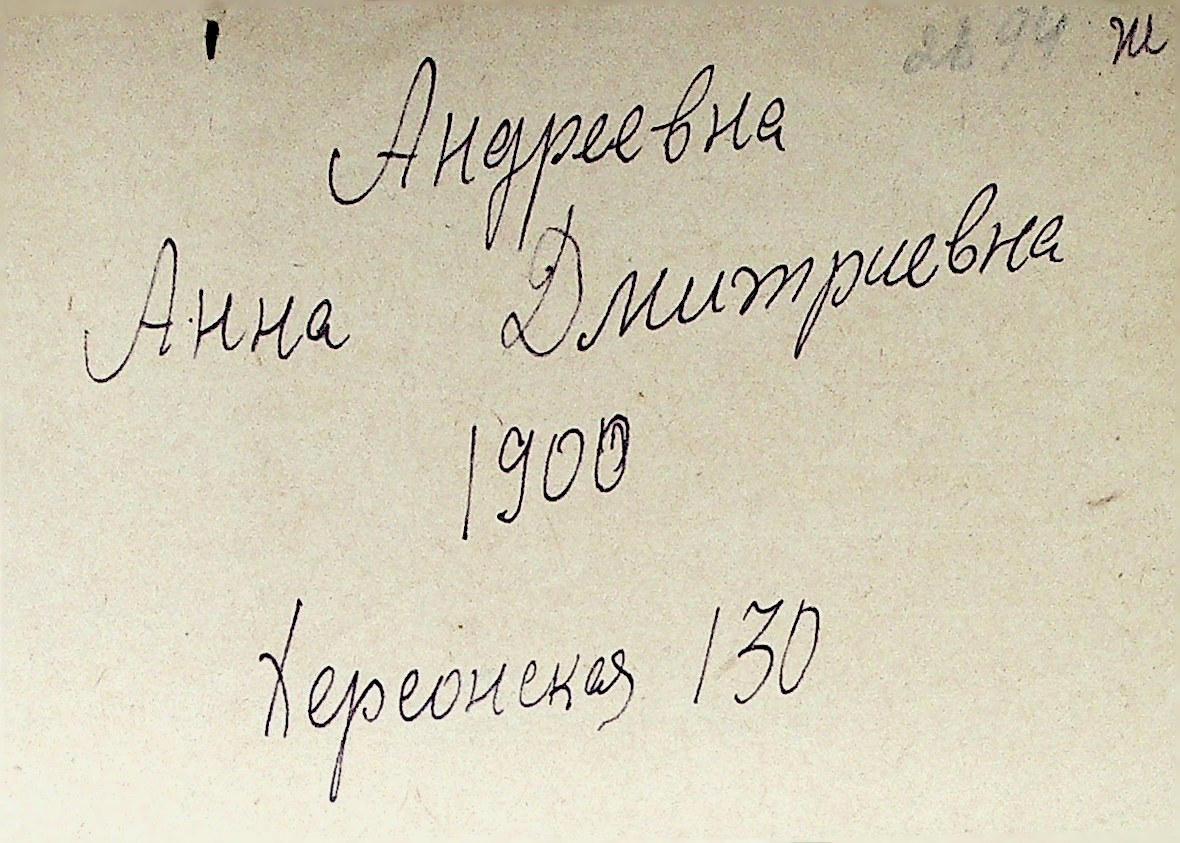 2894 ж
Андреевна
Анна Дмитриевна
1900
Херсонская 130